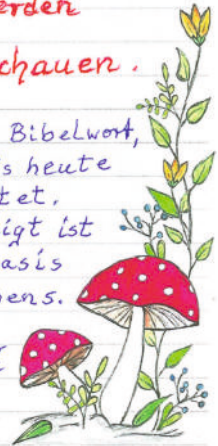 erden
chauen.
Bibelwort,
s heute
tet.
igt ist
asis
ens.